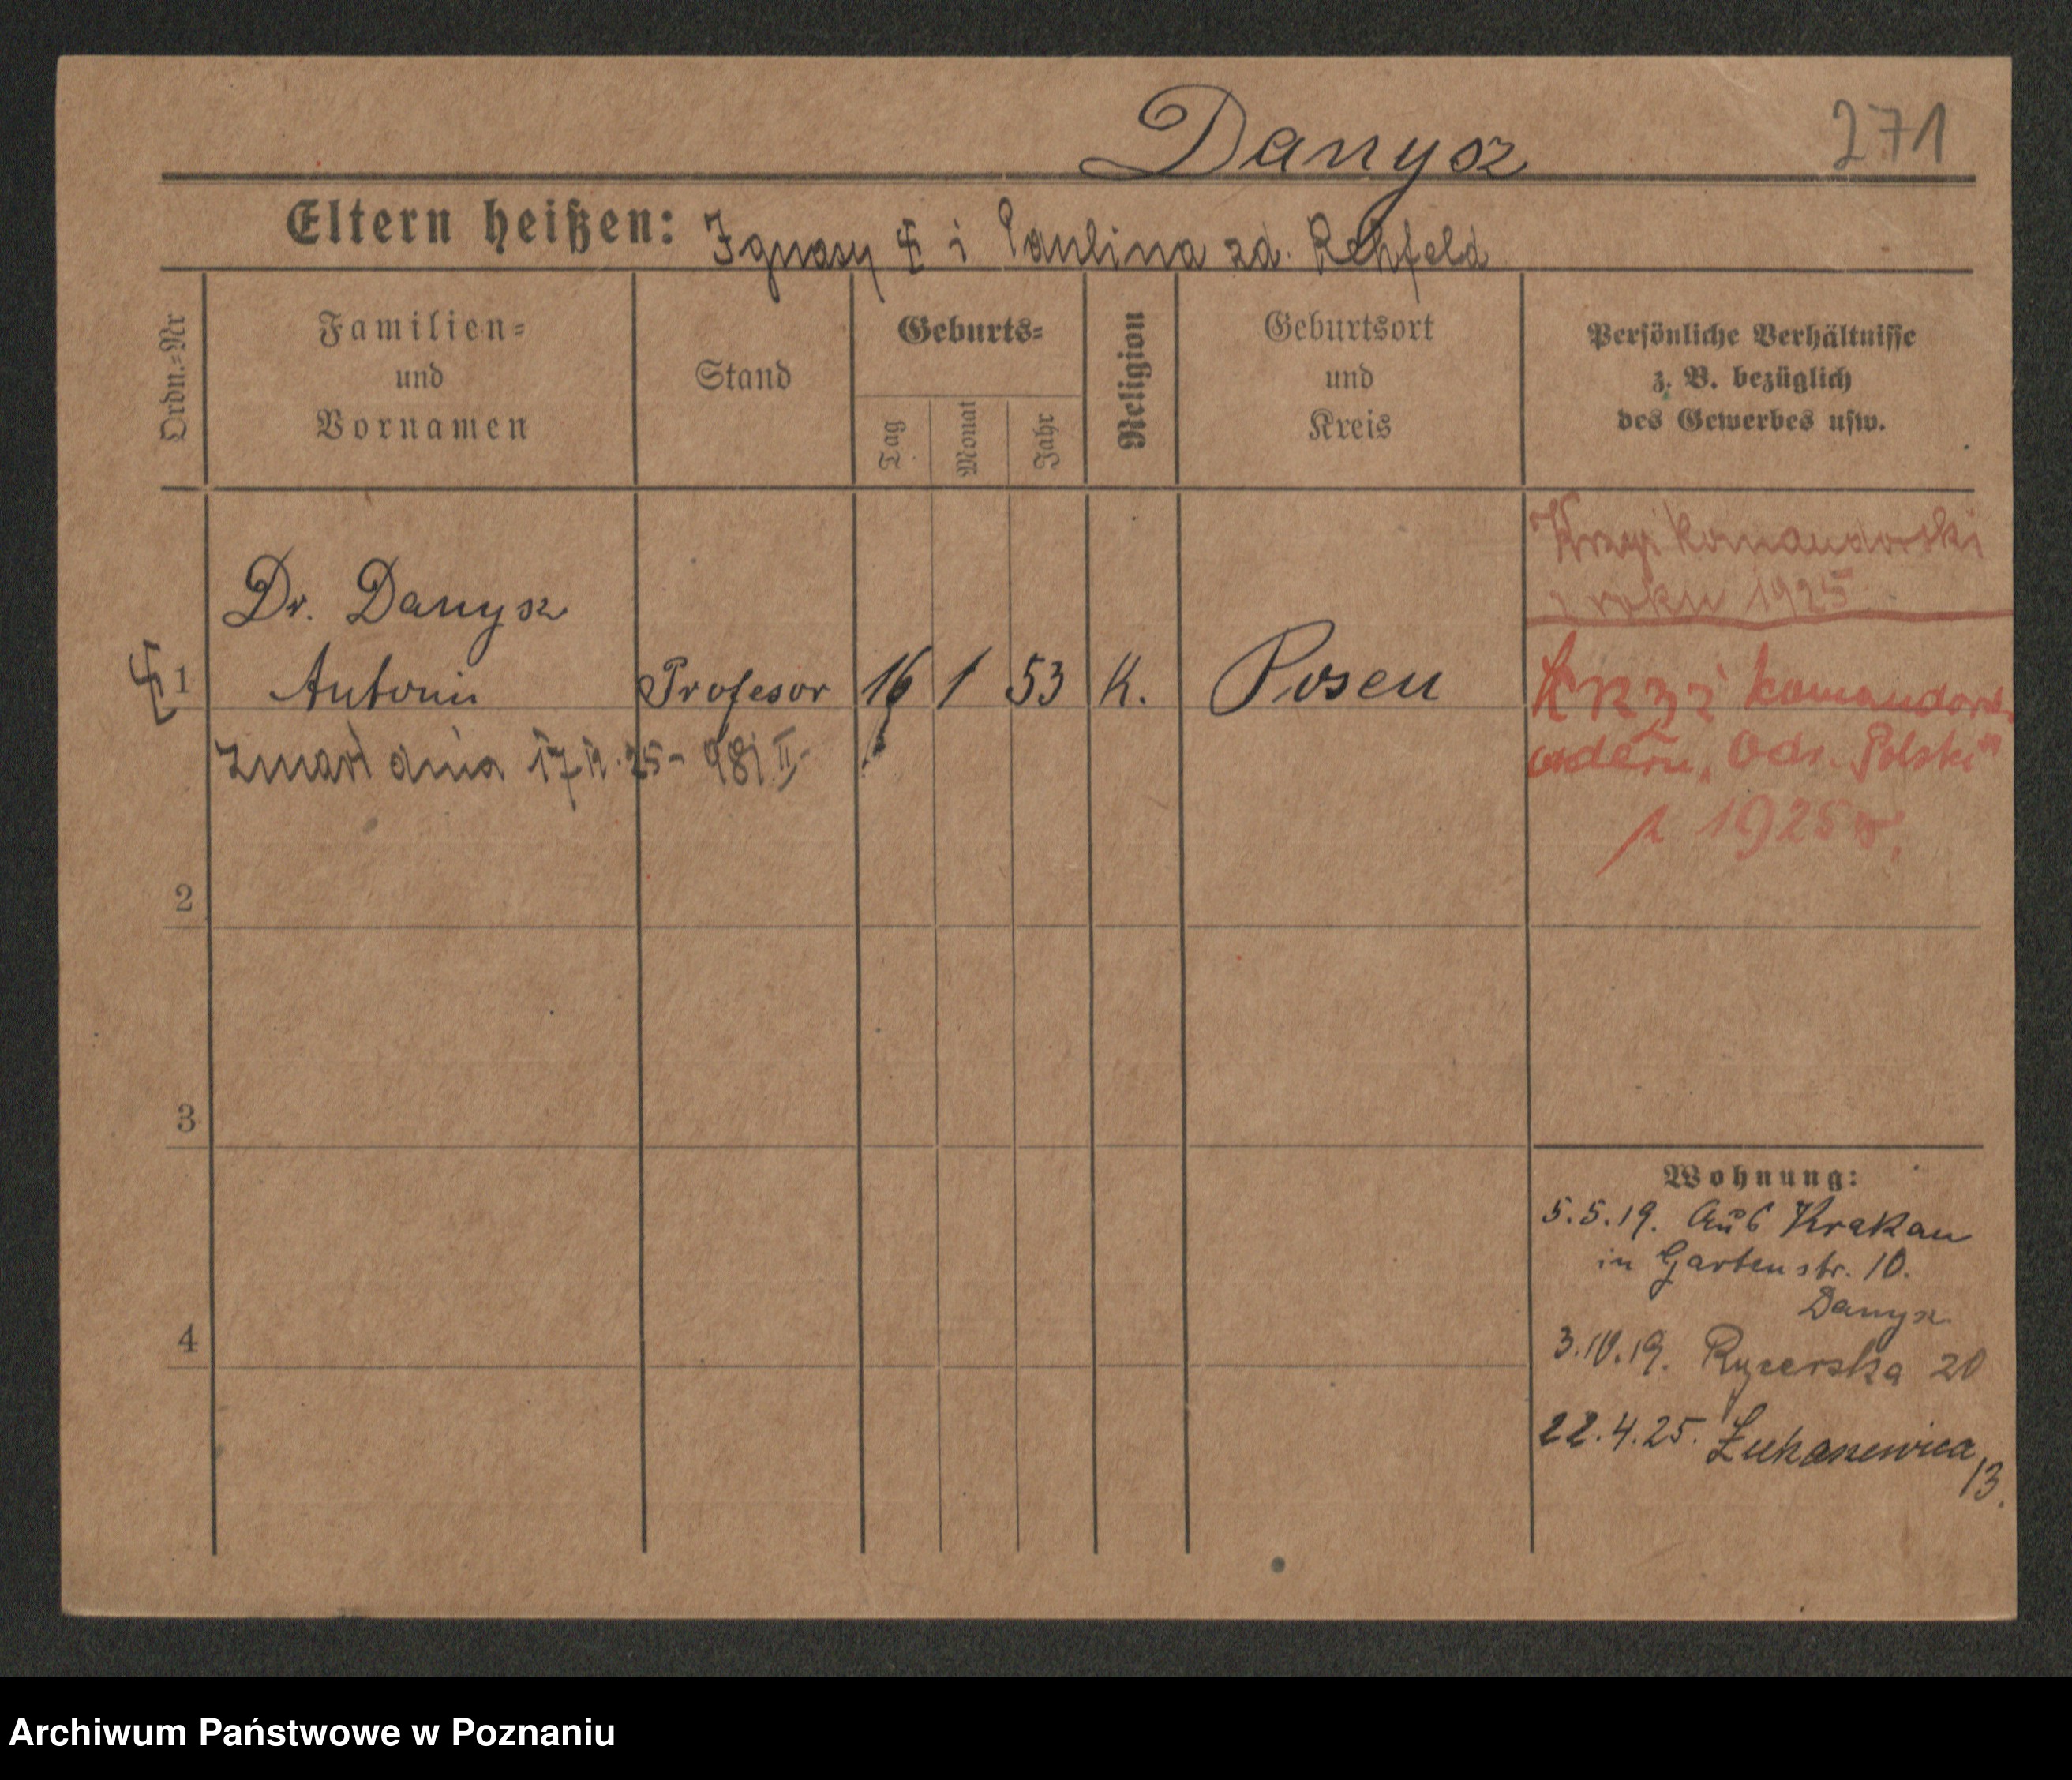 Danysz
271
Eltern heißen: Ignasy ‡ i Paulina zd. Rehfeld
Ordn.=Nr
Familien=
und
Vornamen
Stand
Geburts=
Tag
Monat
Jahr
Religion
Geburtsort
und
Kreis
Persönliche Verhältnisse
z. B. bezüglich
des Gewerbes usw.
Krzyż komandorski
z roku 1925
Dr. Danysz
‡ 1 Antoni Profesor 16 1 53 K. Posen
Krzyż komandorsk.
orderu „Odr. Polski"
z 1925 r.
zmarł dnia 25 - 981 II
2
3
4
Wohnung:
5.5.19. Aus Krakau
in Gartenstr. 10.
Danysz
3.10.19. Rycerska 20
22.4.25. Łukaszewicza
13.
Archiwum Państwowe w Poznaniu